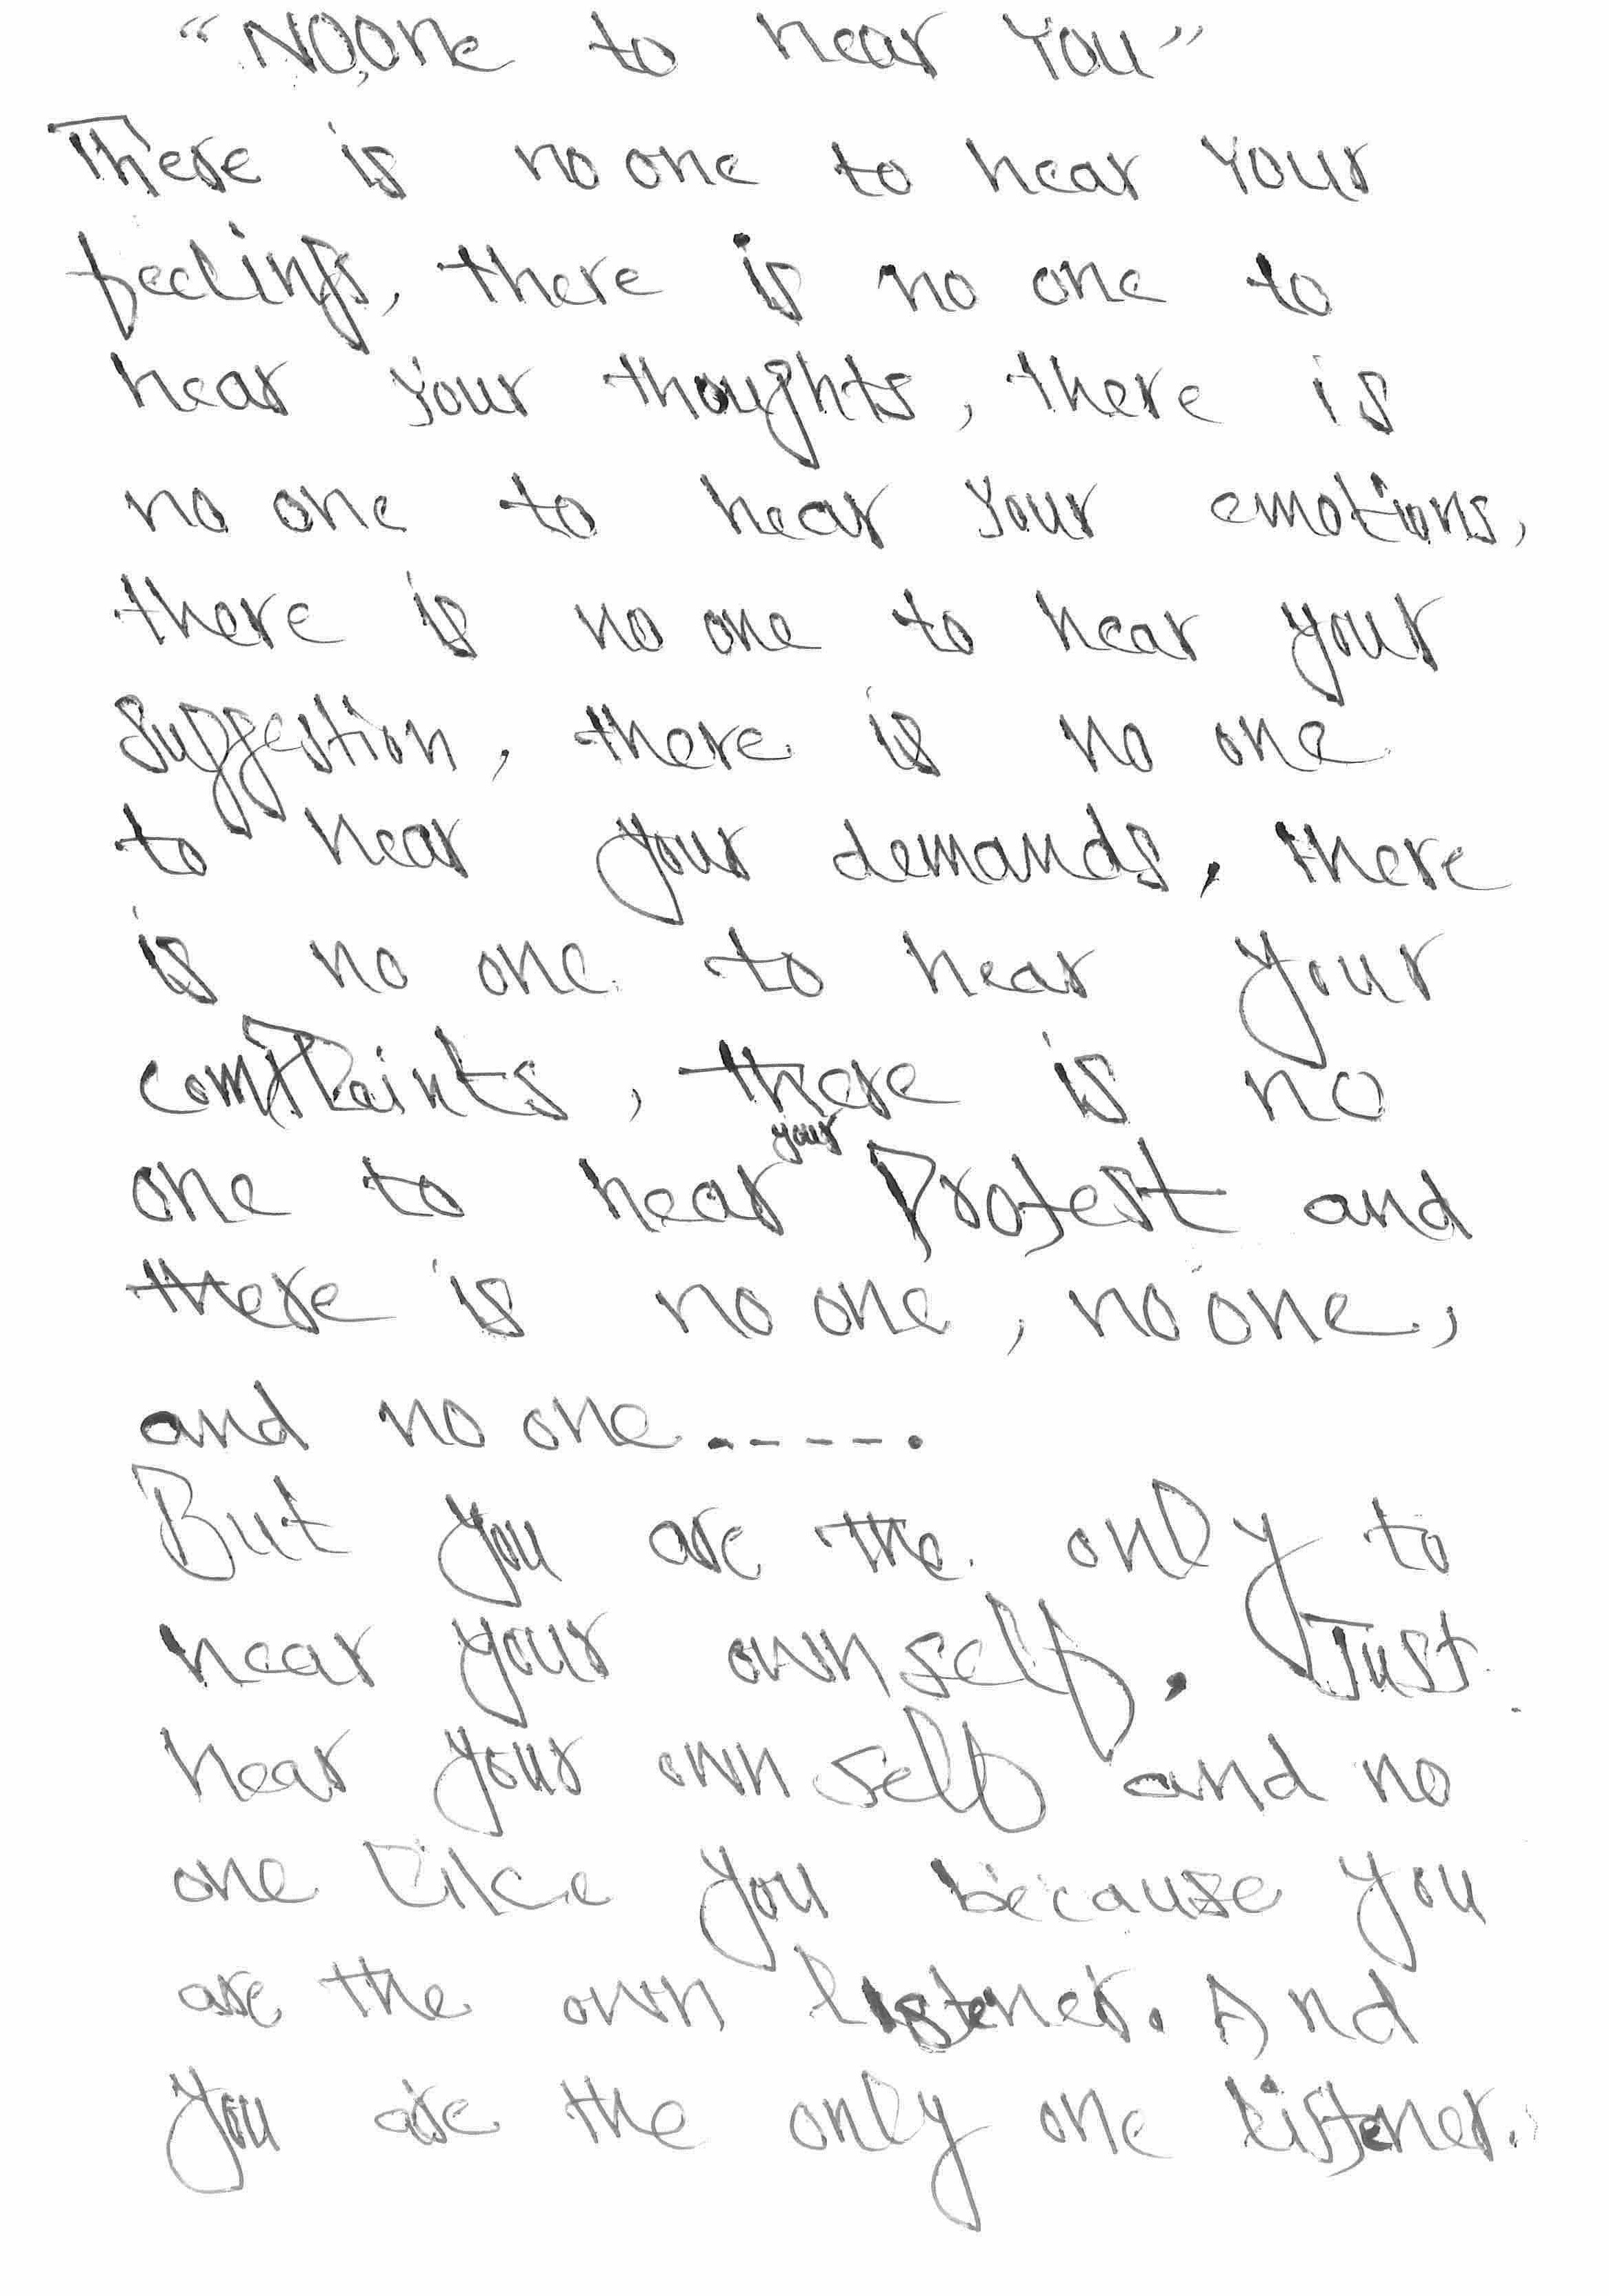 "NO,One to hear You"
There is no one to hear Your
feelings, there is no one to
hear Your thoughts, there is
no one to hear Your emotions,
there is no one to hear your
Suggestion, there is no one
to hear your demands, there
is no one to hear your
complaints, there is no
one to hear your Protest and
there is no one, no one,
and no one.----.
But you are the only to
hear your own self. Just
hear your own self and no
one Like you because you
are the own listener. And
you are the only one listener.